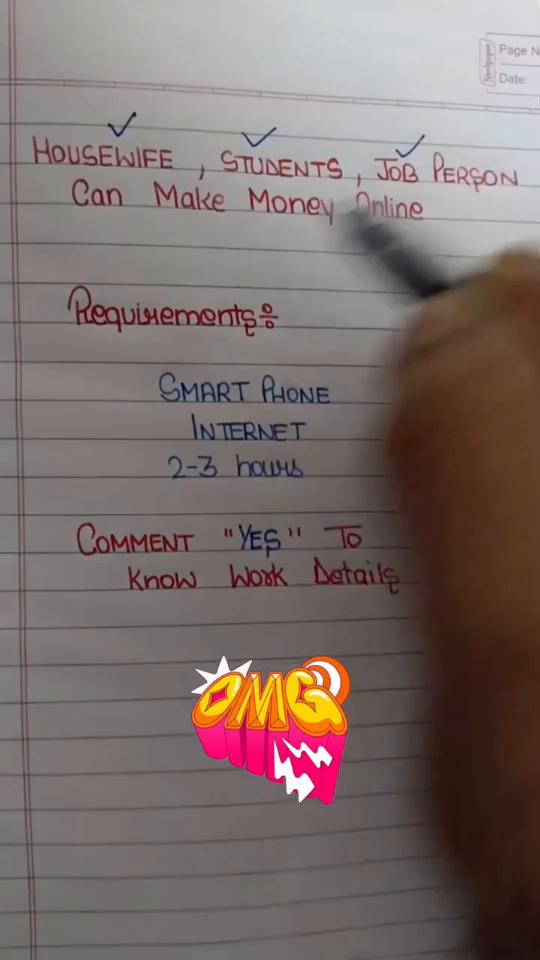 Page N
Date:
HOUSEWIFE , STUDENTS , JOB PERSON
Can Make Money Online
Requirements÷
SMART PHONE
INTERNET
2-3 hours
COMMENT "YES" TO
Know Work Details
OMG